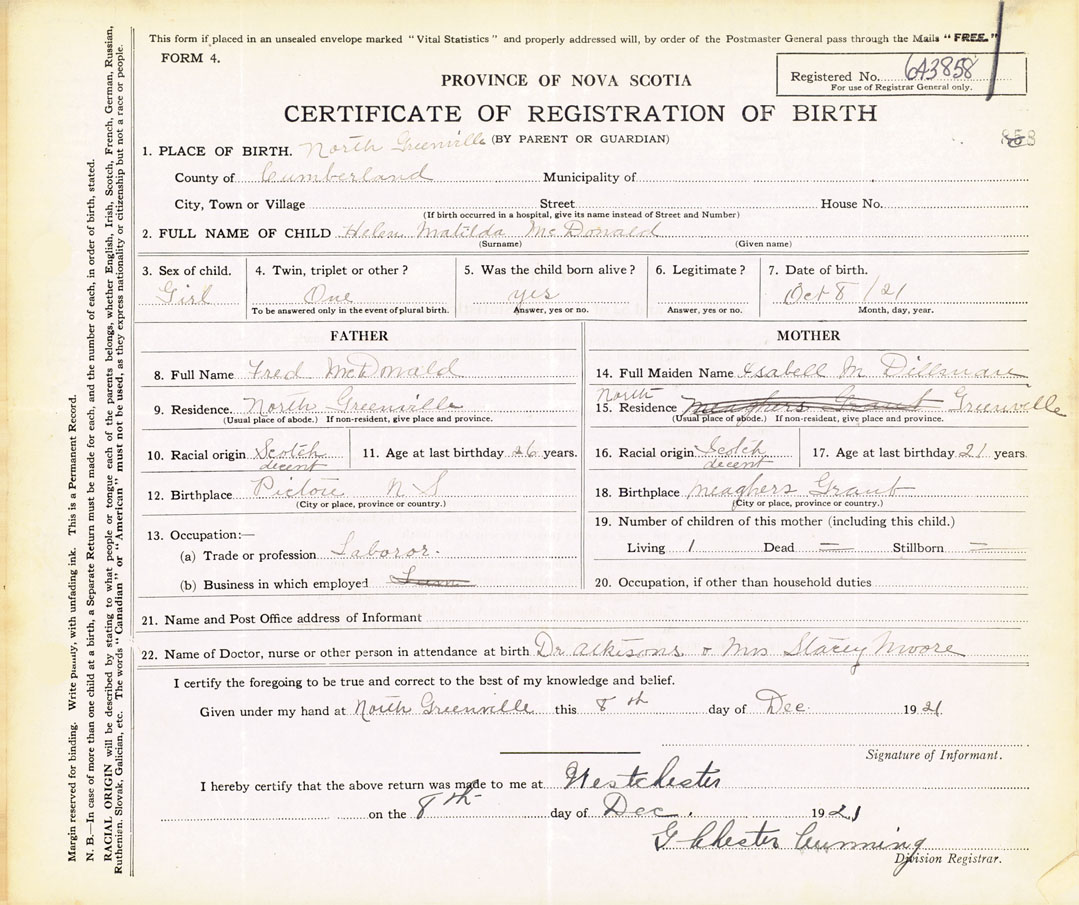 This form if placed in an unsealed envelope marked "Vital Statistics" and properly addressed will, by order of the Postmaster General pass through the Mails "FREE."
FORM 4.
Registered No. 643858
For use of Registrar General only.
PROVINCE OF NOVA SCOTIA
CERTIFICATE OF REGISTRATION OF BIRTH
(BY PARENT OR GUARDIAN)
1. PLACE OF BIRTH. North Greenville
County of Cumberland Municipality of
City, Town or Village Street House No.
(If birth occurred in a hospital, give its name instead of Street and Number)
2. FULL NAME OF CHILD Helen Matilda McDonald
(Surname) (Given name)
3. Sex of child. 4. Twin, triplet or other? 5. Was the child born alive? 6. Legitimate? 7. Date of birth.
Girl One yes Oct 8 /21
To be answered only in the event of plural birth. Answer, yes or no. Answer, yes or no. Month, day, year.
FATHER
8. Full Name Fred McDonald
9. Residence. North Greenville
(Usual place of abode.) If non-resident, give place and province.
10. Racial origin Scotch decent 11. Age at last birthday 26 years.
12. Birthplace Pictou N S
(City or place, province or country.)
13. Occupation:—
(a) Trade or profession Laboror.
(b) Business in which employed
MOTHER
14. Full Maiden Name Isabell M Dillman
North
15. Residence Meaghers Grant Greenville
(Usual place of abode.) If non-resident, give place and province.
16. Racial origin Scotch decent 17. Age at last birthday 21 years.
18. Birthplace Meaghers Grant
(City or place, province or country.)
19. Number of children of this mother (including this child.)
Living 1 Dead — Stillborn —
20. Occupation, if other than household duties
21. Name and Post Office address of Informant
22. Name of Doctor, nurse or other person in attendance at birth Dr Atkisons & Mrs Stacey Moore
I certify the foregoing to be true and correct to the best of my knowledge and belief.
Given under my hand at North Greenville this 8th day of Dec 1921
Signature of Informant.
I hereby certify that the above return was made to me at Westchester
on the 8th day of Dec. 1921
G Chester Cunning
Division Registrar.
Margin reserved for binding. Write plainly, with unfading ink. This is a Permanent Record.
N. B.—In case of more than one child at a birth, a Separate Return must be made for each, and the number of each, in order of birth, stated.
RACIAL ORIGIN will be described by stating to what people or tongue each of the parents belongs, whether English, Irish, Scotch, French, German, Russian,
Ruthenian, Slovak, Galician, etc. The words "Canadian" or "American" must not be used, as they express nationality or citizenship but not a race or people.